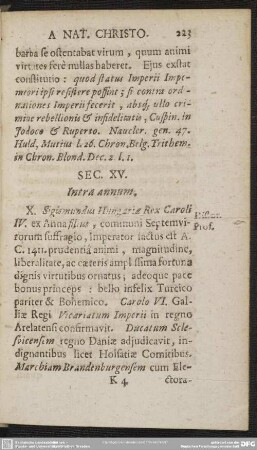 A NAT. CHRISTO. 223
barba se ostentabat virum, quum animi
virtutes ferè nullas haberet. Ejus exstat
constitutio: quod status Imperii Impe-
ratori ipsi resistere possint; si contra ord-
nationes Imperii fecerit, absq; ullo cri-
mine rebellionis & infidelitatis, Cuspin. in
Jodoco & Ruperto. Naucler. gen. 47.
Huld, Mutius l. 26. Chron. Belg. Trithem.
in Chron. Blond. Dec. 2. l. 1.
SEC. XV.
Intra annum.
X. Sigismundus Hungariæ Rex Caroli
IV. ex Anna filius, communi Septemvi-
rorum suffragio, Imperator factus est A.
C. 1411. prudentiâ animi, magnitudine,
liberalitate, ac cæteris amplissima fortuna
dignis virtutibus ornatus; adeoque pace
bonus princeps: bello infelix Turcico
pariter & Bohemico. Carolo VI. Gal-
liæ Regi Vicariatum Imperii in regno
Arelatensi confirmavit. Ducatum Sles-
vicensem regno Daniæ adjudicavit, in-
dignantibus licet Holsatiæ Comitibus.
Marchiam Brandenburgensem cum Ele-
K 4 ctora-
Prof.